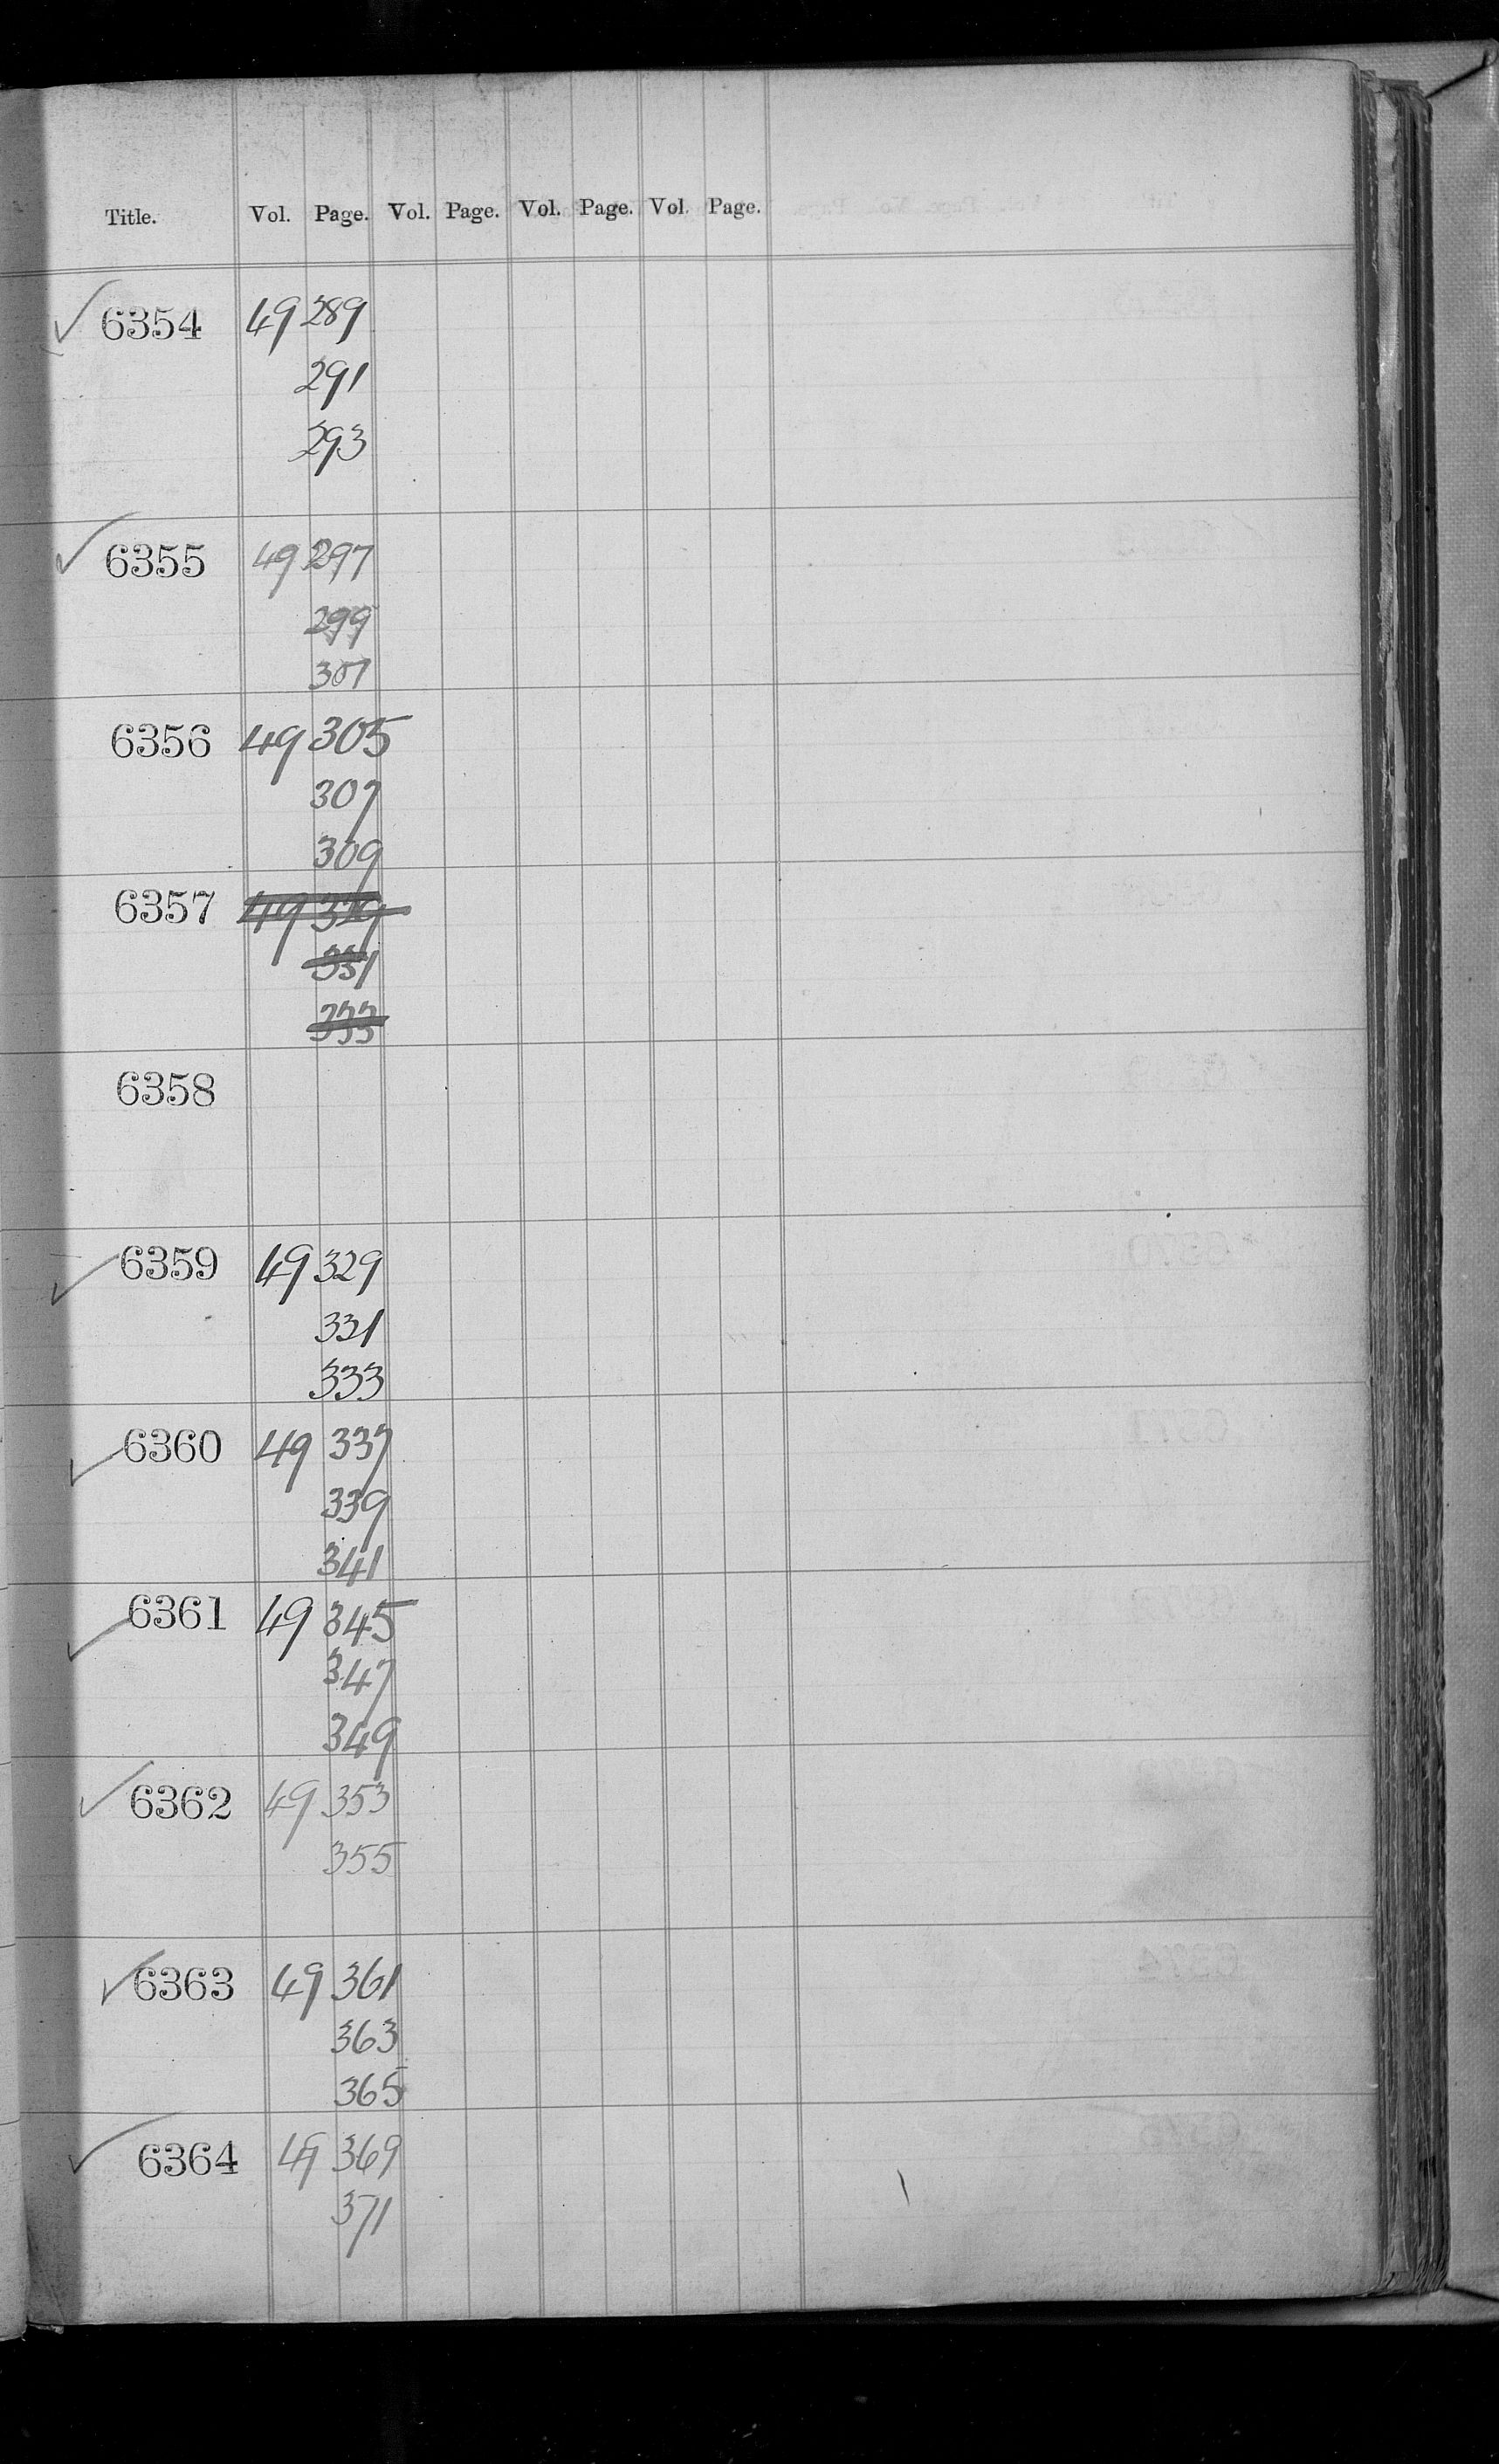 Title. Vol. Page. Vol. Page. Vol. Page. Vol. Page.
✓ 6354 49 289
291
293
✓ 6355 49 297
299
301
6356 49 305
307
309
6357 49 329
331
333
6358
✓ 6359 49 329
331
333
✓ 6360 49 337
339
341
✓ 6361 49 345
347
349
✓ 6362 49 353
355
✓ 6363 49 361
363
365
✓ 6364 49 369
371